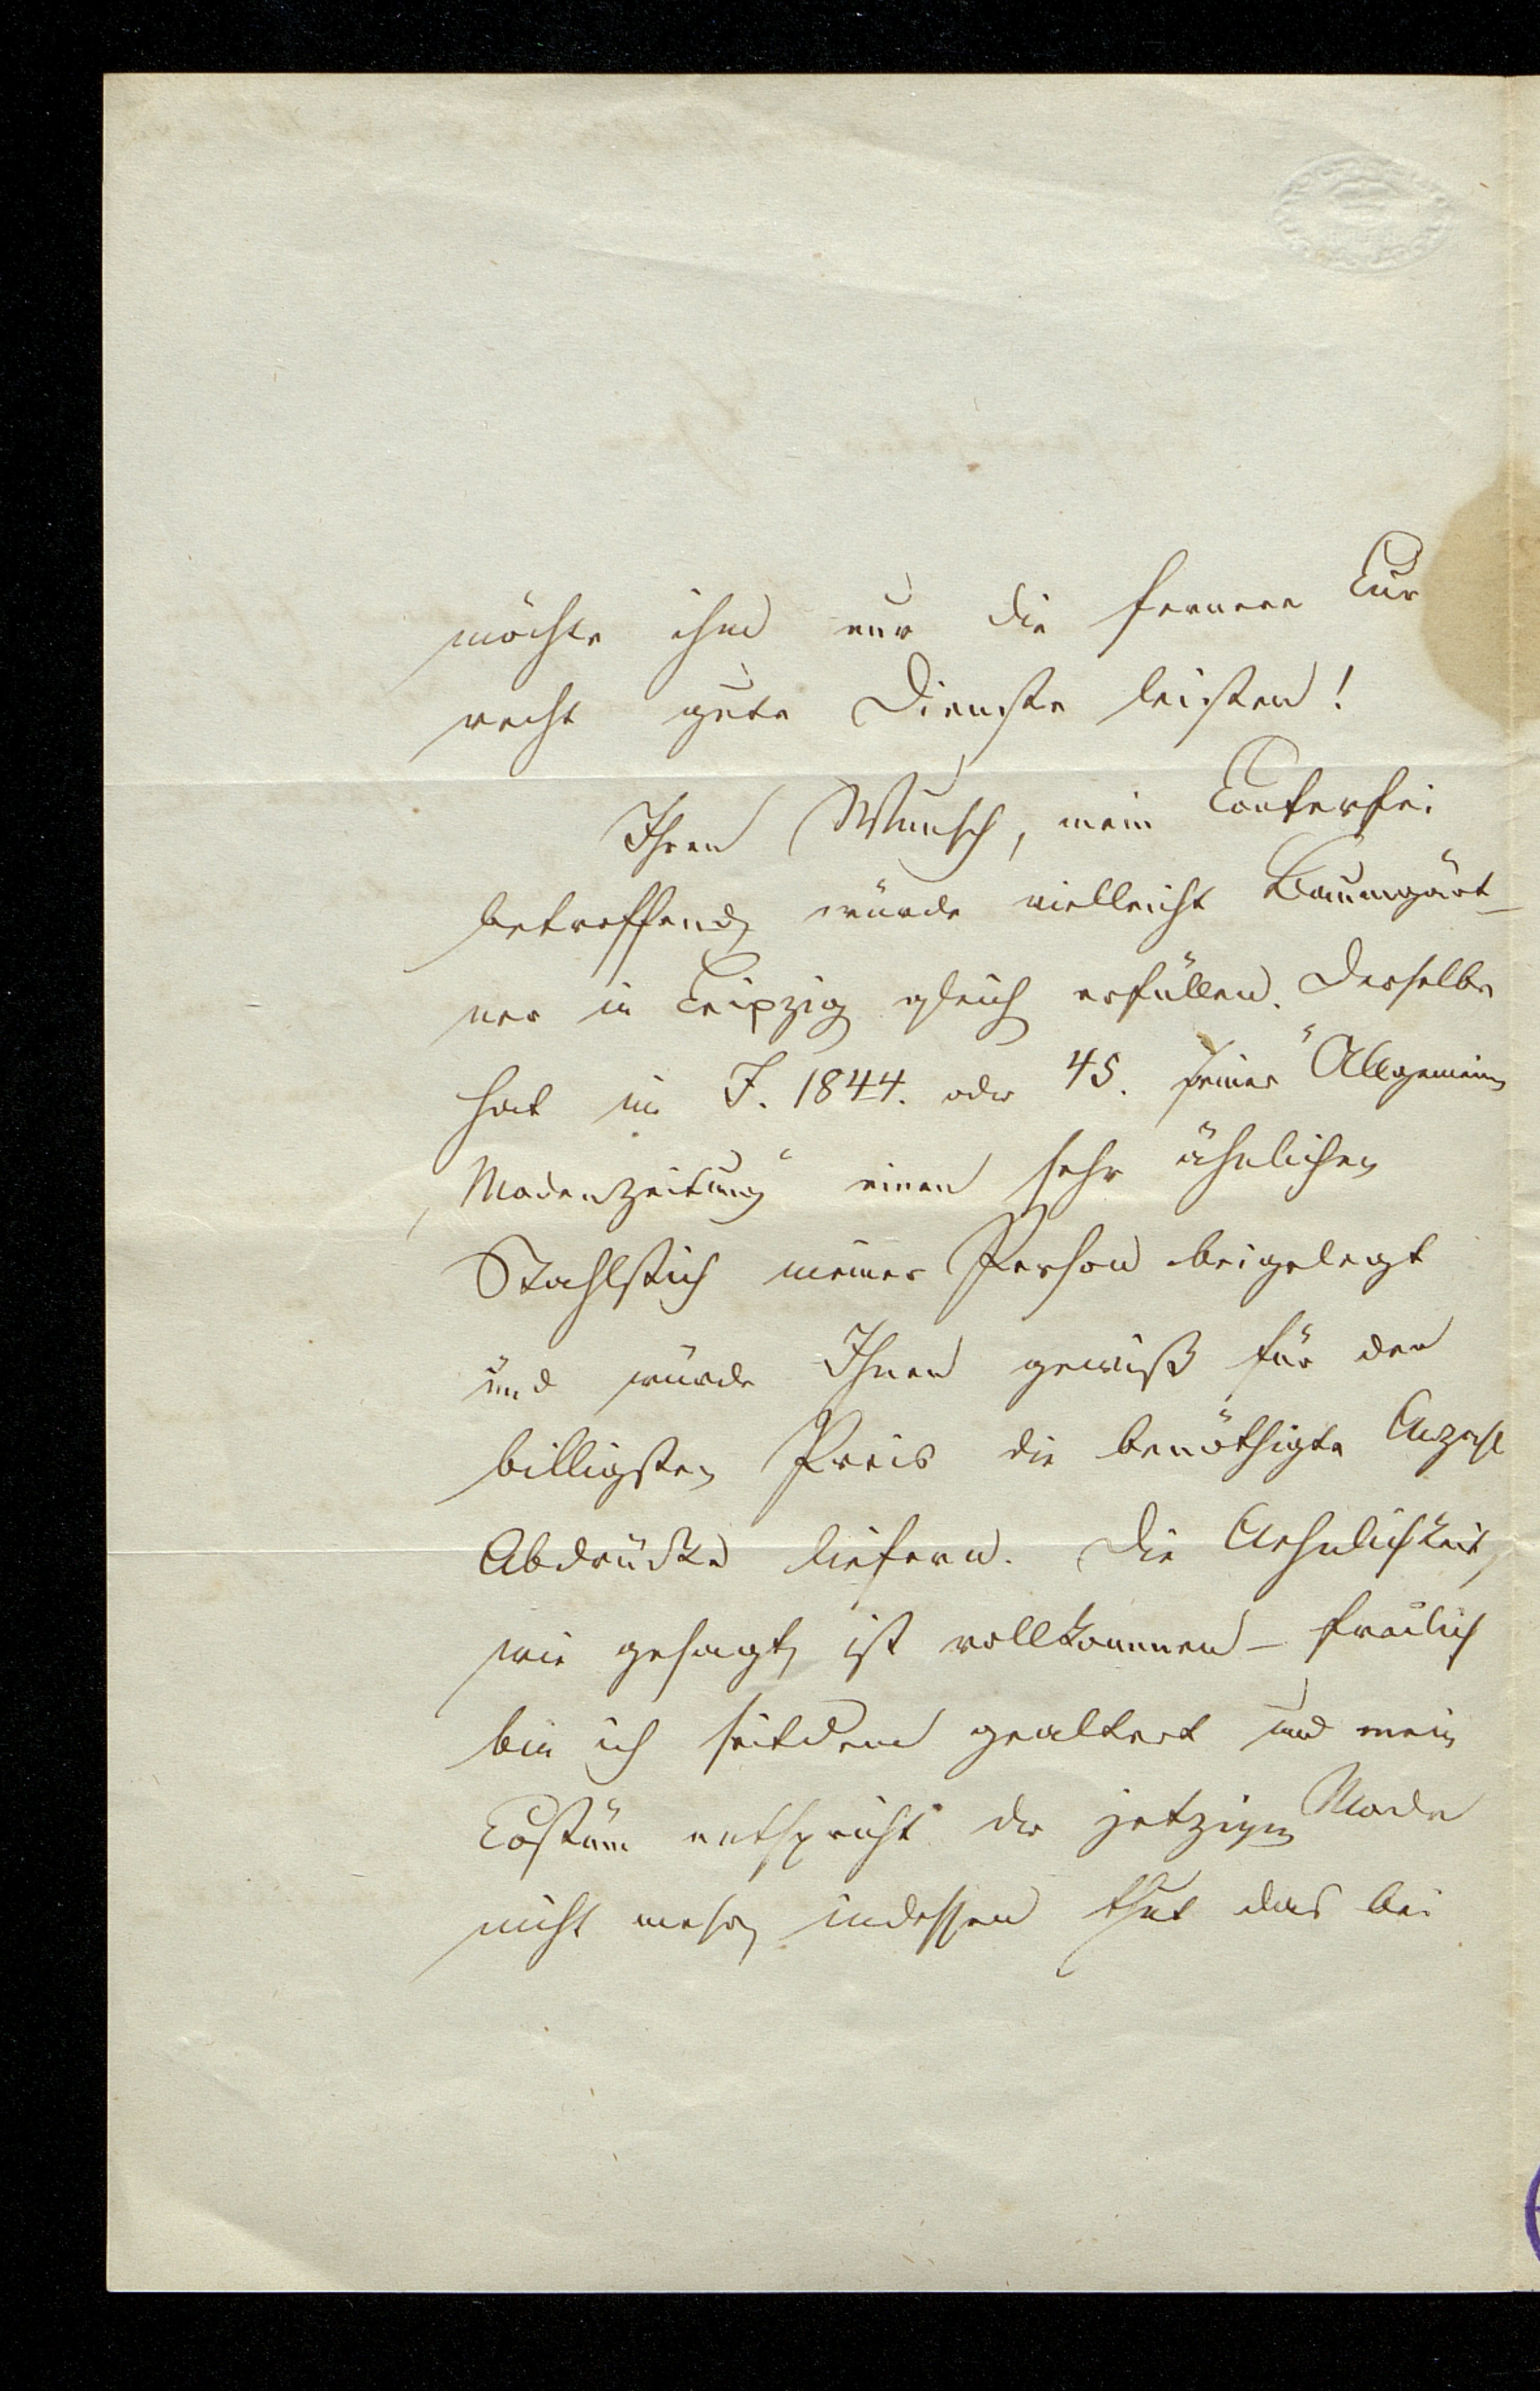 möchte ihm nur die fernere Cur
recht gute Dienste leisten!
Ihren Wunsch, mein Conterfei
betreffend, würde vielleicht Baumgärt-
ner in Leipzig gleich erfüllen. Derselbe
hat im J. 1844. oder 45. seiner "Allgemeinen
Modenzeitung" einen sehr ähnlichen
Stahlstich meiner Person beigelegt
und würde Ihnen gewiß für den
billigsten Preis die benöthigte Anzahl
Abdrücke liefern. Die Aehnlichkeit,
wie gesagt, ist vollkommen – freilich
bin ich seitdem gealtert und mein
Costüm entspricht der jetzigen Mode
nicht mehr, indessen thut das bei